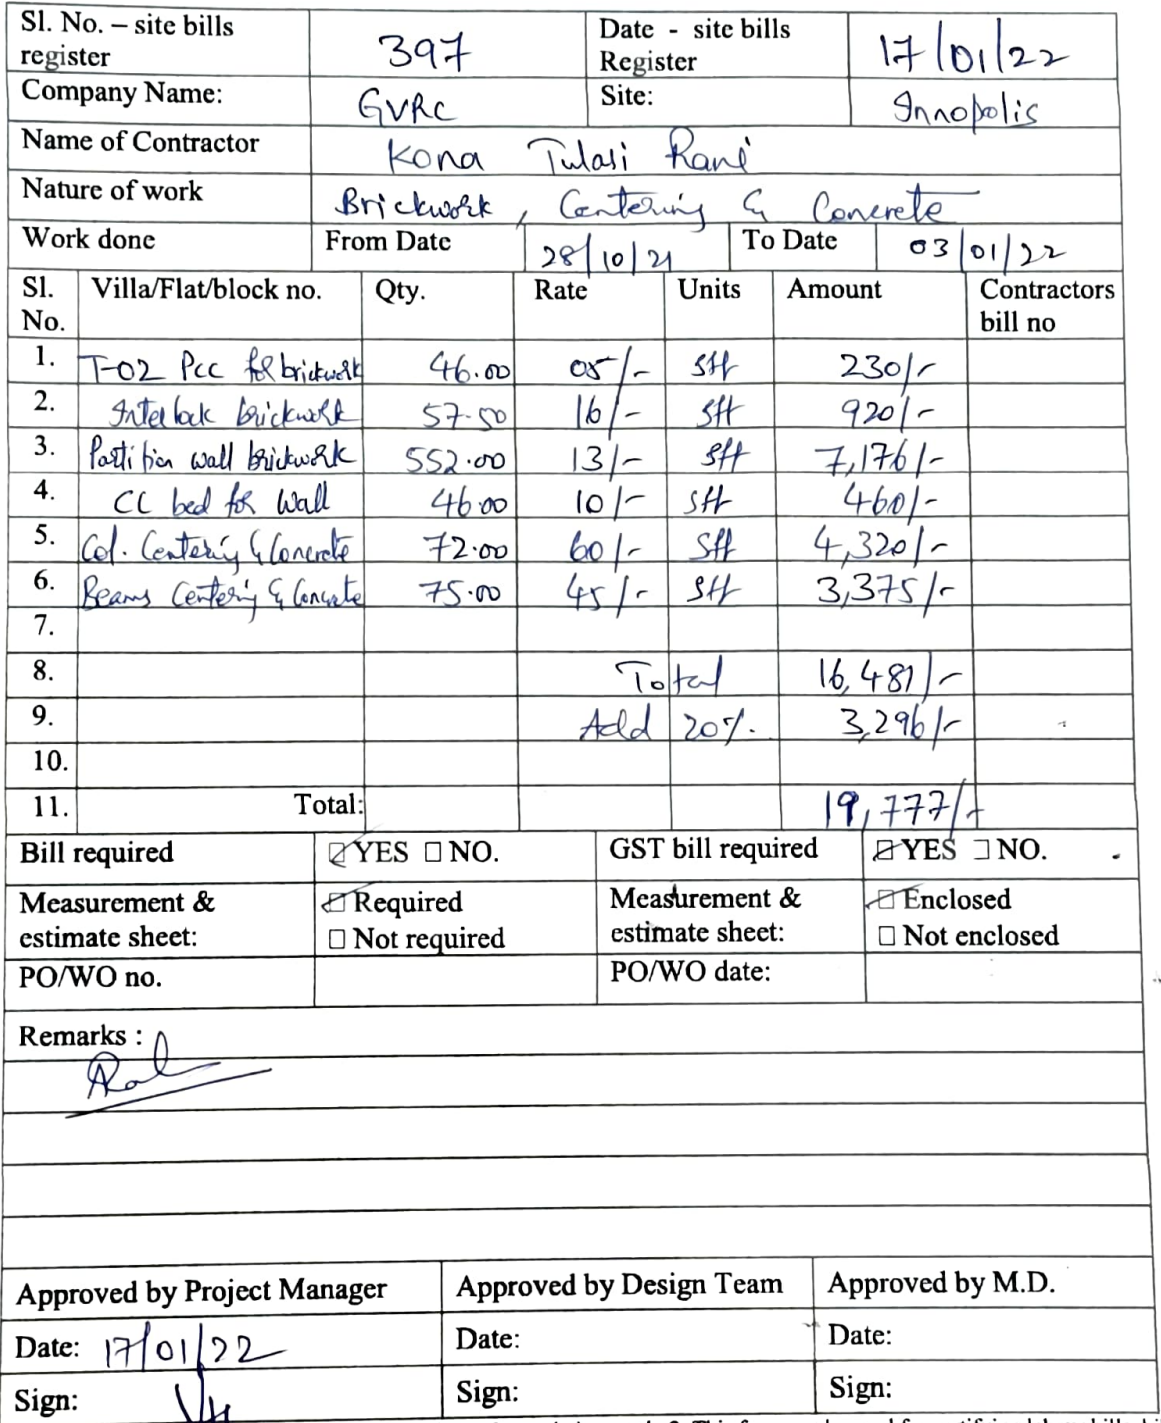 Sl. No. – site bills register 397 Date - site bills Register 17/01/22
Company Name: GVRC Site: Innopolis
Name of Contractor Kona Tulasi Rani
Nature of work Brickwork, Centering & Concrete
Work done From Date 28/10/21 To Date 03/01/22
Sl. No. Villa/Flat/block no. Qty. Rate Units Amount Contractors bill no
1. T-02 Pcc for brickwork 46.00 05/- sft 230/-
2. Interlock brickwork 57.50 16/- sft 920/-
3. Partition wall brickwork 552.00 13/- sft 7,176/-
4. CC bed for wall 46.00 10/- sft 460/-
5. Col. Centering & Concrete 72.00 60/- sft 4,320/-
6. Beams Centering & Concrete 75.00 45/- sft 3,375/-
7.
8. Total 16,481/-
9. Add 20% 3,296/-
10.
11. Total: 19,777/-
Bill required YES NO. GST bill required YES NO.
Measurement & estimate sheet: Required Not required Measurement & estimate sheet: Enclosed Not enclosed
PO/WO no. PO/WO date:
Remarks :
Approved by Project Manager Approved by Design Team Approved by M.D.
Date: 17/01/22 Date: Date:
Sign: Sign: Sign: